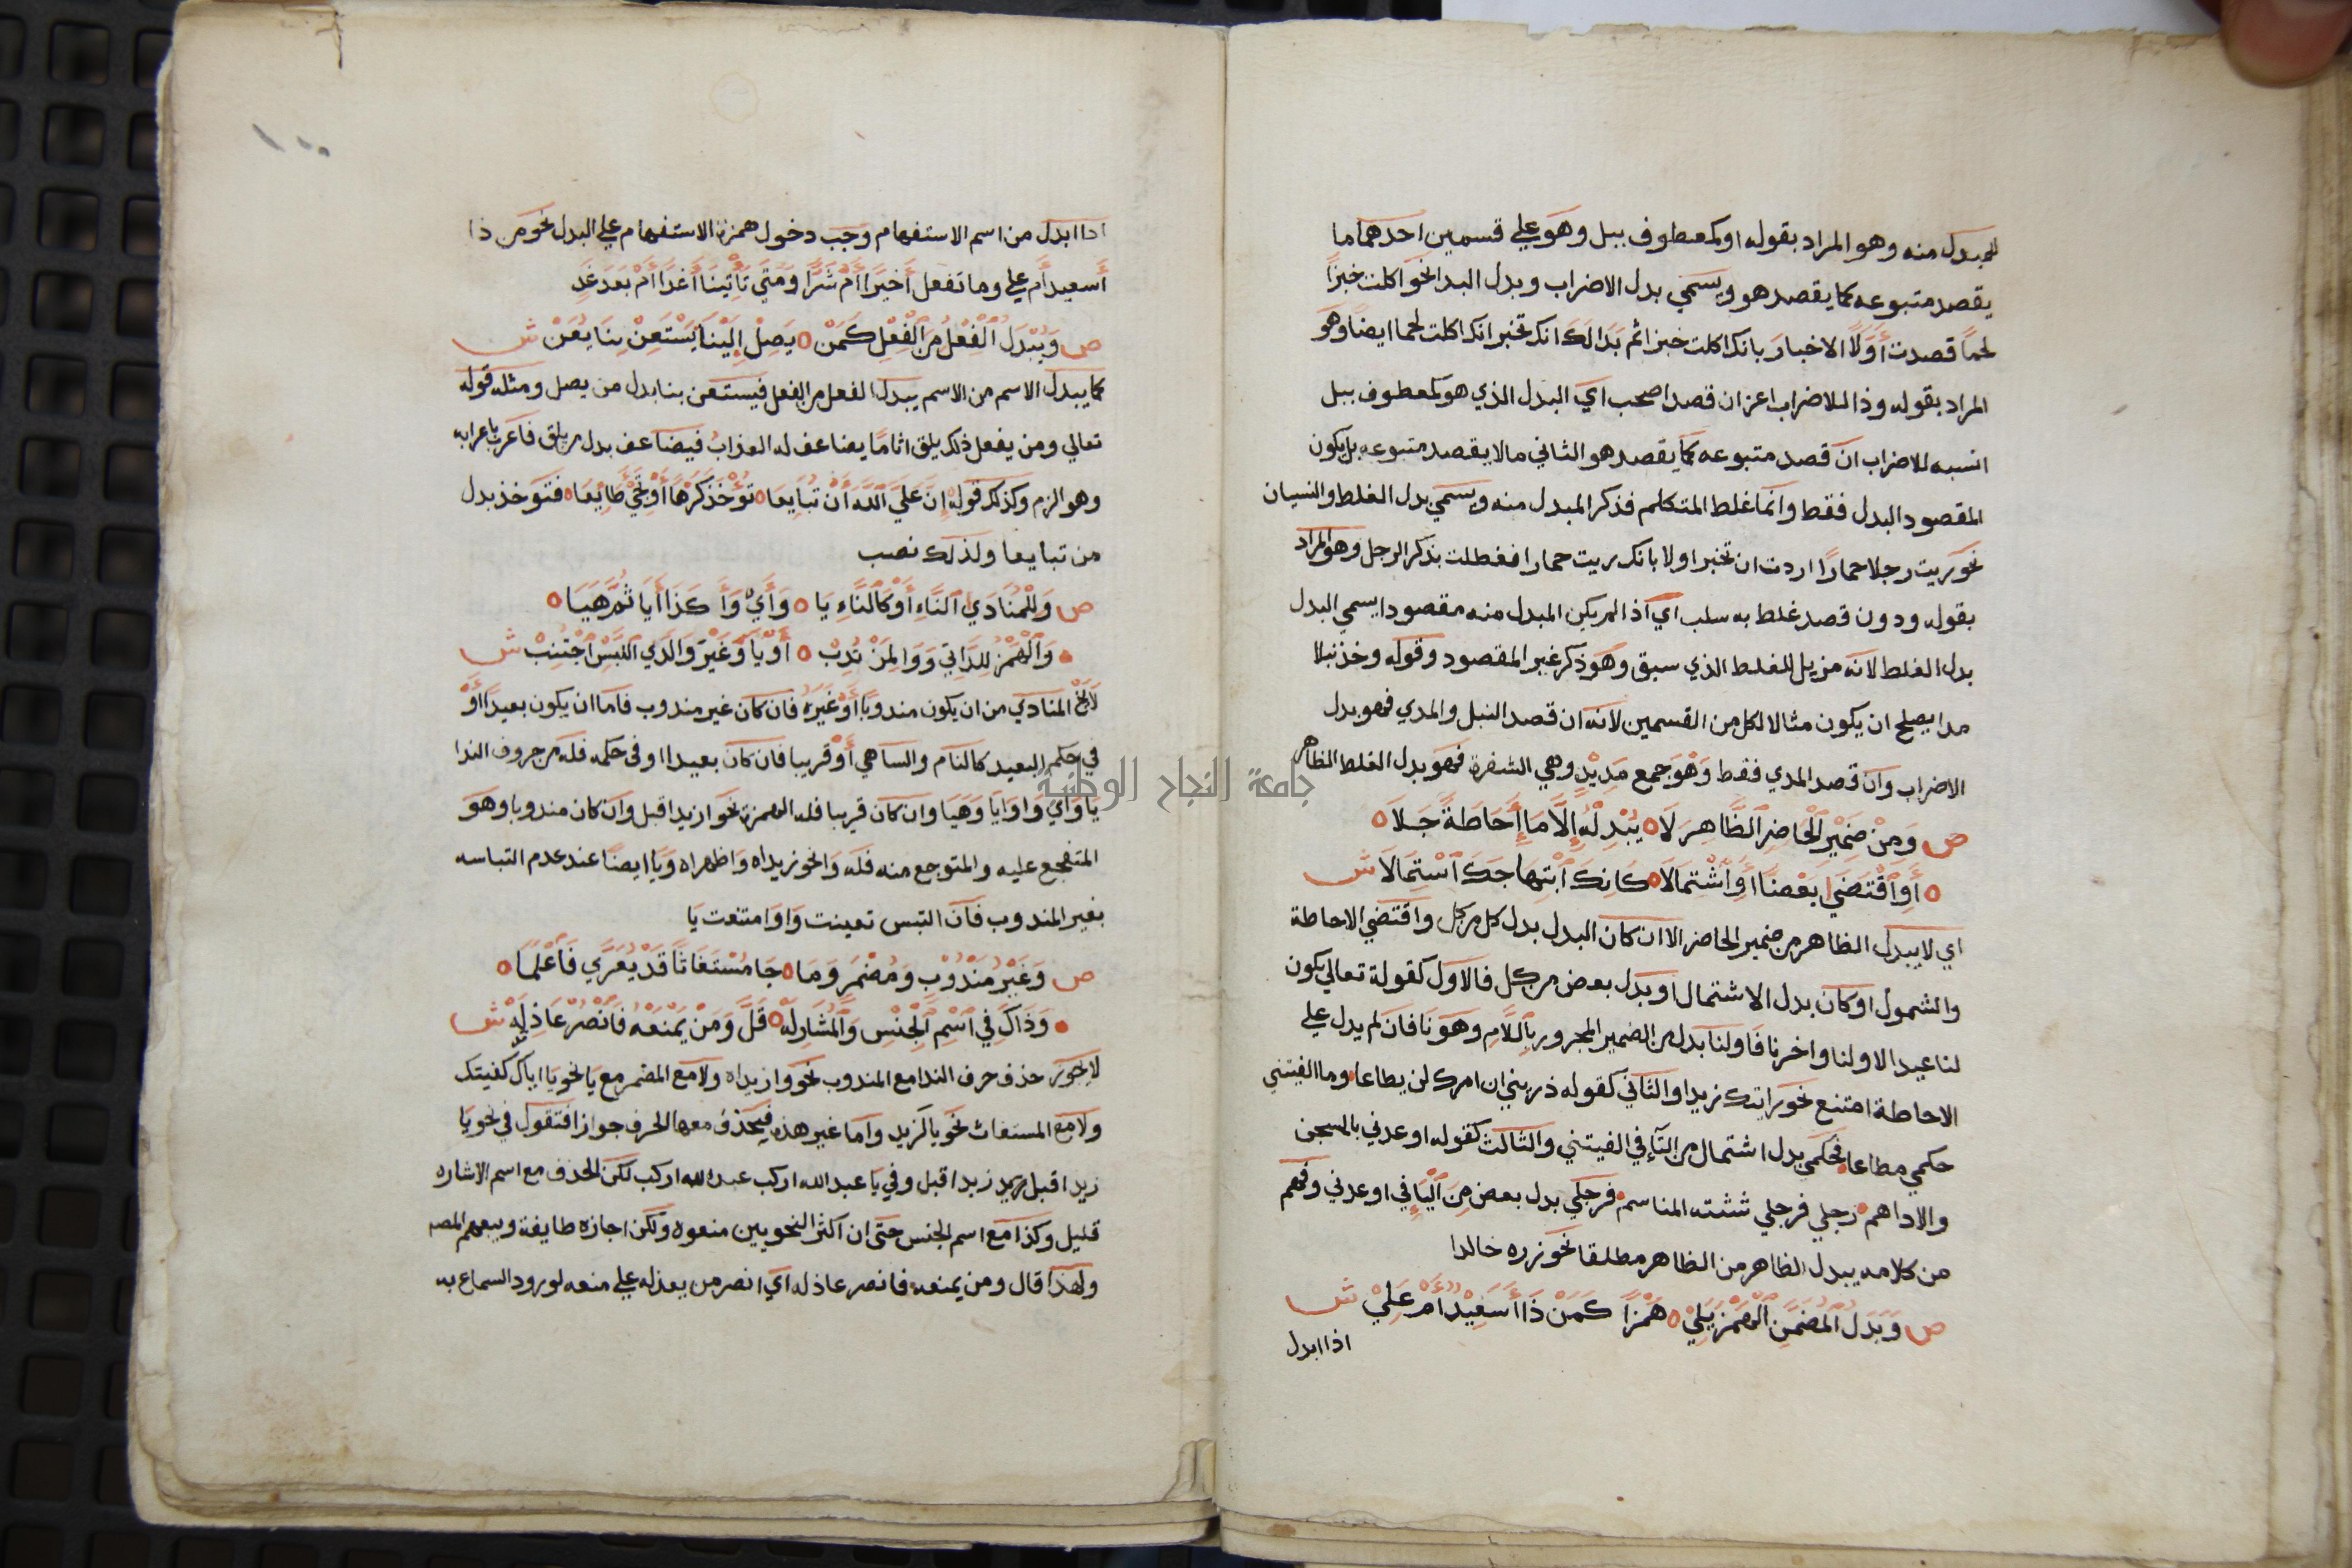 للمبدل منه وهو المراد بقوله او كمعطوف ببل وهو علي قسمين احدهما ما
يقصد متبوعه كما يقصد هو ويسمي بدل الاضراب وبدل البدا نحو اكلت خبزًا
لحمًا قصدت أولًا الاخبار بانك اكلت خبزا ثم بدا لك انك تخبر انك اكلت لحما ايضًا وهو
المراد بقوله وذا للاضراب اعز ان قصدا صحب اي البدل الذي هو كمعطوف ببل
انسبه للاضراب ان قصد متبوعه كما يقصد هو الثاني ما لا يقصد متبوعه بل يكون
المقصود البدل فقط وانما غلط المتكلم فذكر المبدل منه ويسمي بدل الغلط والنسيان
نحو ريت رجلا حمارًا اردت ان تخبر اولا بانك ريت حمارا فغطلت بذكر الرجل وهو المراد
بقوله ودون قصد غلط به سلب اي اذا لم يكن المبدل منه مقصودا يسمي البدل
بدل الغلط لانه مزيل للغلط الذي سبق وهو ذكر غير المقصود وقوله وخذ نبلا
مدا يصلح ان يكون مثالا لكل من القسمين لانه ان قصد النبل والمدي فهو بدل
الاضراب وان قصد المدي فقط وهو جمع مدية وهي الشفرة فهو بدل الغلط الظاهر
ص وَمِنْ ضَمِيْرِ ٱلْحَاضِرِ ٱلظَّاهِرَ لَا ٥ يُبْدِلْهُ إِلَّا مَا إِحَاطَةً جَلَا ٥
٥ أَوِ ٱقْتَضَي بَعْضًا أَوِ ٱشْتِمَالَا ٥ كَانِكَ ٱبْتِهَاجَكَ ٱسْتِمَالَا ش
اي لا يبدل الظاهر من ضمير الحاضر الا ان كان البدل بدل كل من كل واقتضي الاحاطة
والشمول او كان بدل الاشتمال او بدل بعض من كل فالاول كقولة تعالي يكون
لنا عيدا لاولنا واخرنا فاولنا بدل من الضمير المجرور باللام وهو نا فان لم يدل علي
الاحاطة امتنع نحو رايتك زيدا والثاني كقوله ذريني ان امرك لن يطاعا وما الفيتني
حكمي مطاعا فحكمي بدل اشتمال من التآ في الفيتني والثالث كقوله اوعدني بالسجن
والاداهم رجلي فرجلي شثنه المناسم فرجلي بدل بعض من اليا في اوعدني وفهم
من كلامه يبدل الظاهر من الظاهر مطلقا نحو زره خالدا
ص وَبَدَلُ ٱلْمُضَمَّنِ ٱلْهَمْزَ يَلِيْ ٥ هَمْزًا كَمَنْ ذَا أَسَعِيْدٌ أَمْ عَلِيْ ش
اذا ابدل
١٠٠
اذا ابدل من اسم الاستفهام وجب دخول همزة الاستفهام علي البدل نحو من ذا
أسعيد أم علي وما تفعل أخيرًا أم شرًّا ومتي تأتينا أغدًا أم بعد غدٍ
ص وَيُبْدَلُ ٱلْفِعْلُ مِنَ ٱلْفِعْلِ كَمَنْ ٥ يَصِلْ إِلَيْنَا يَسْتَعِنْ بِنَا يُعَنْ ش
كما يبدل الاسم من الاسم يبدل الفعل من الفعل فيستعن بنا بدل من يصل ومثله قوله
تعالي ومن يفعل ذلك يلق اثامًا يضاعف له العذاب فيضاعف بدل من يلق فاعرب باعرابه
وهو الزم وكذلك قوله إن عليَّ الله أن تبايعا ٥ تؤخذ كرها أو تجي طائعا ٥ فتوخذ بدل
من تبايعا ولذلك نصب
ص وَلِلْمُنَادَي ٱلنَّاءِ أَوْ كَالنَّاءِ يَا ٥ وَأَيْ وَآ كَذَا أَيَا ثُمَّ هَيَا ٥
• وَٱلْهَمْزُ لِلدَّانِي وَوَا لِمَنْ نُدِبْ ٥ أَوْ يَا وَغَيْرُ وَا لَدَي ٱللَّبْسِ ٱجْتُنِبْ ش
لا يخ المنادي من ان يكون مندوبًا أو غيره فان كان غير مندوب فاما ان يكون بعيدًا أو
في حكم البعيد كالنام والساهي أو قريبا فان كان بعيدا او في حكمه فله من حروف الندا
يا وأي وا وايا وهيا وان كان قريبا فله الهمزة نحو ازيد اقبل وان كان مندوبا وهو
المتفجع عليه والمتوجع منه فله وا نحو وازيداه وا ظهراه ويا ايضًا عند عدم التباسه
بغير المندوب فان التبس تعينت وا وامتنعت يا
ص وَغَيْرُ مَنْدُوْبٍ وَمُضْمَرٍ وَمَا ٥ جَا مُسْتَغَاثًا قَدْ يُعَرَّي فَٱعْلَمَا ٥
• وَذَاكَ فِي ٱسْمِ ٱلْجِنْسِ وَٱلْمُشَارِ لَهْ ٥ قَلَّ وَمَنْ يَمْنَعْهُ فَٱنْصُرْ عَاذِلَهْ ش
لا يجوز حذف حرف الندا مع المندوب نحو وازيداه ولا مع المضمر مع يا نحو يا اياك كفيتك
ولا مع المستغاث نحو يا لزيد واما غير هذه فيحذف معها الحرف جوازا فتقول في نحو يا
زيد اقبل زيد اقبل وفي يا عبد الله اركب عبد الله اركب لكن الحذف مع اسم الاشاره
قليل وكذا مع اسم الجنس حتي ان اكثر النحويين منعوه ولكن اجازه طايفة وتبعهم المص
ولهذا قال ومن يمنعه فانصر عاذله اي انصر من يعذله علي منعه لورود السماع به
جامعة النجاح الوطنية